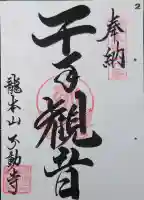 奉納
千手観音
龍本山 不動寺
2